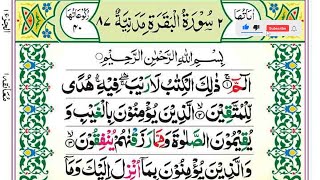 ٢ سُوْرَةُ الْبَقَرَةِ مَدَنِيَّةٌ ٨٧
بِسْمِ اللّٰهِ الرَّحْمٰنِ الرَّحِيْمِ
الٓمّٓ ۚ ذٰلِكَ الْكِتٰبُ لَا رَيْبَ ۛ فِيْهِ ۛ هُدًى
لِّلْمُتَّقِيْنَ الَّذِيْنَ يُؤْمِنُوْنَ بِالْغَيْبِ وَ
يُقِيْمُوْنَ الصَّلٰوةَ وَمِمَّا رَزَقْنٰهُمْ يُنْفِقُوْنَ
وَالَّذِيْنَ يُؤْمِنُوْنَ بِمَآ اُنْزِلَ اِلَيْكَ وَمَآ